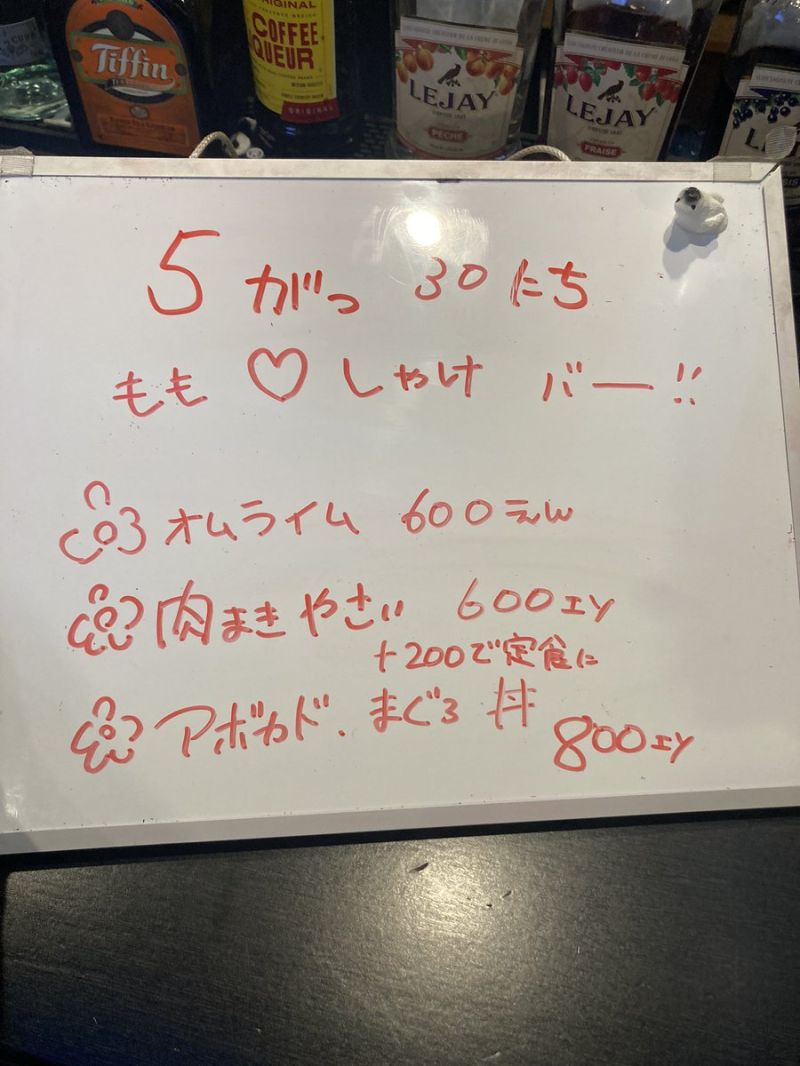 Tiffin
ORIGINAL
COFFEE
LIQUEUR
ORIGINAL
LEJAY
PÊCHE
LEJAY
FRAISE
5がっ 30にち
もも♡しゃけ バー!!
オムライム 600えん
肉まきやさい 600エン
+200で定食に
アボカド.まぐろ丼
800エン